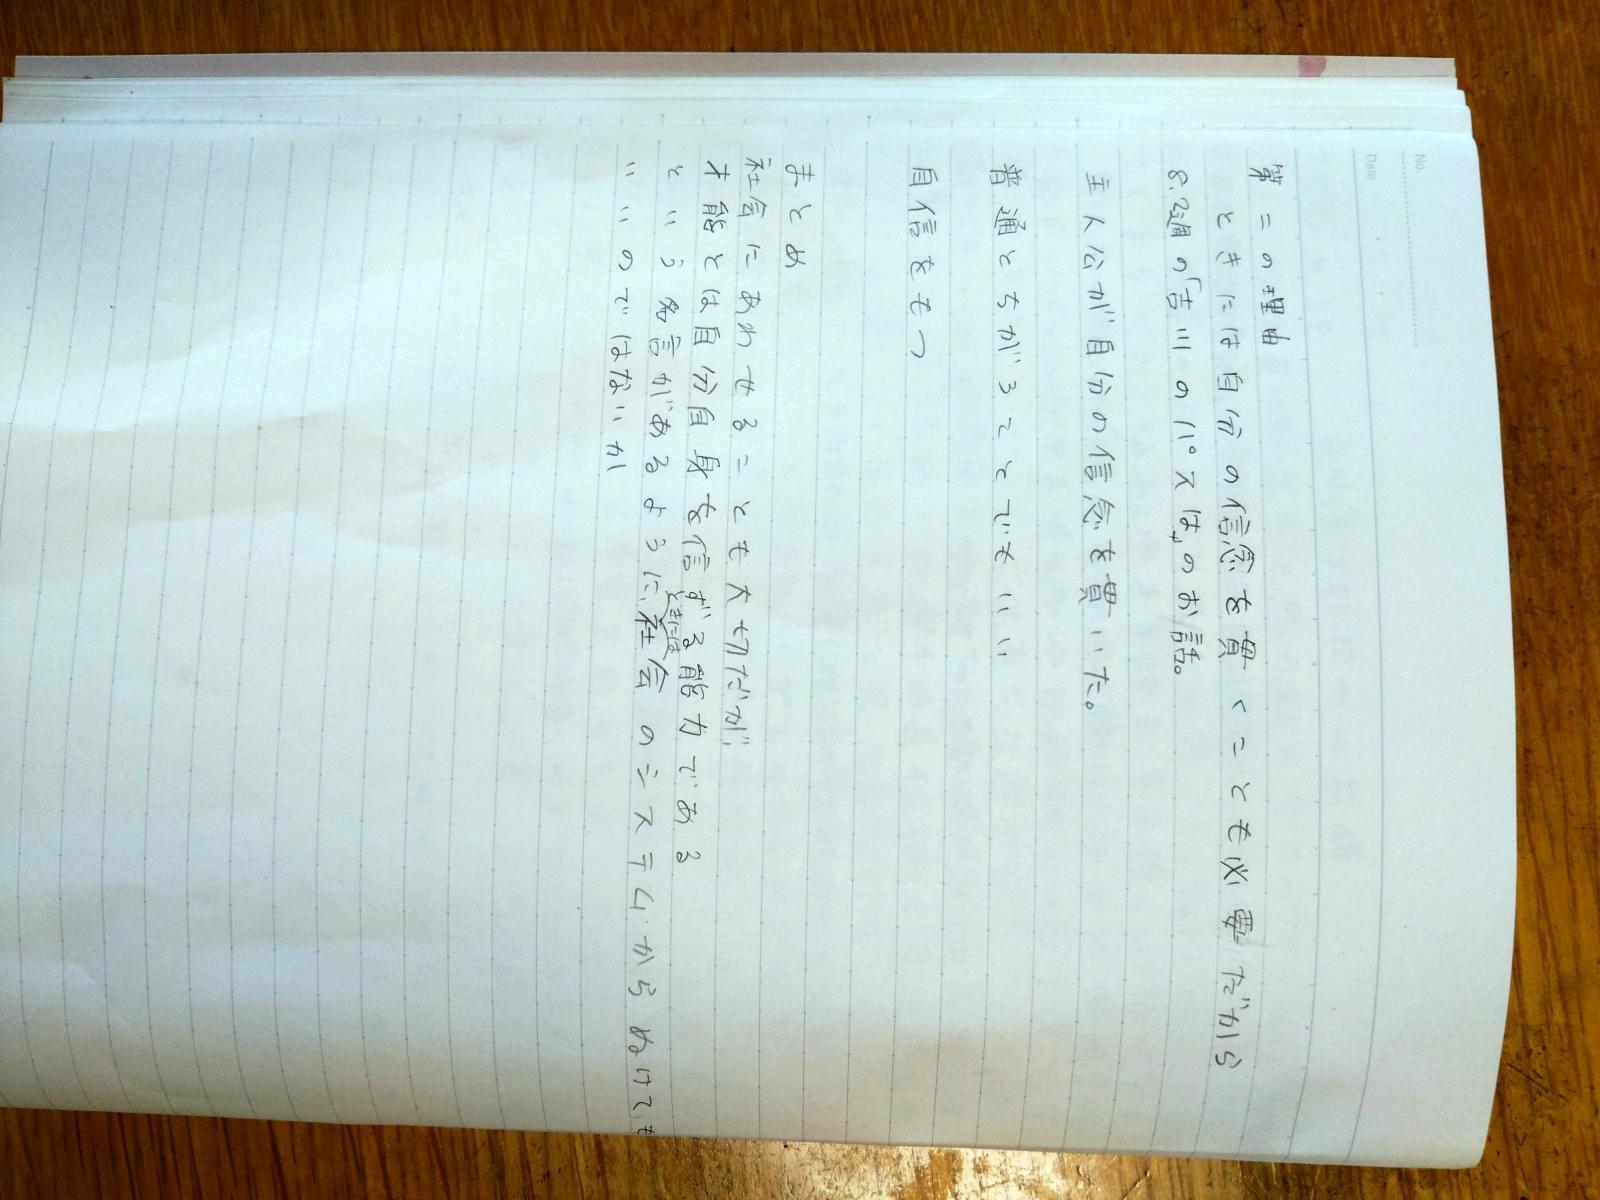 No.
Date
第二の理由
ときには自分の信念を貫くことも必要だから
8.2週の「吉川のパスは」のお話。
主人公が自分の信念を貫いた。
普通とちがうことでもいい
自信をもつ
まとめ
社会にあわせることも大切だが、
才能とは自分自身を信ずる能力である
という名言があるように、ときには社会のシステムからぬけても
いいのではないか